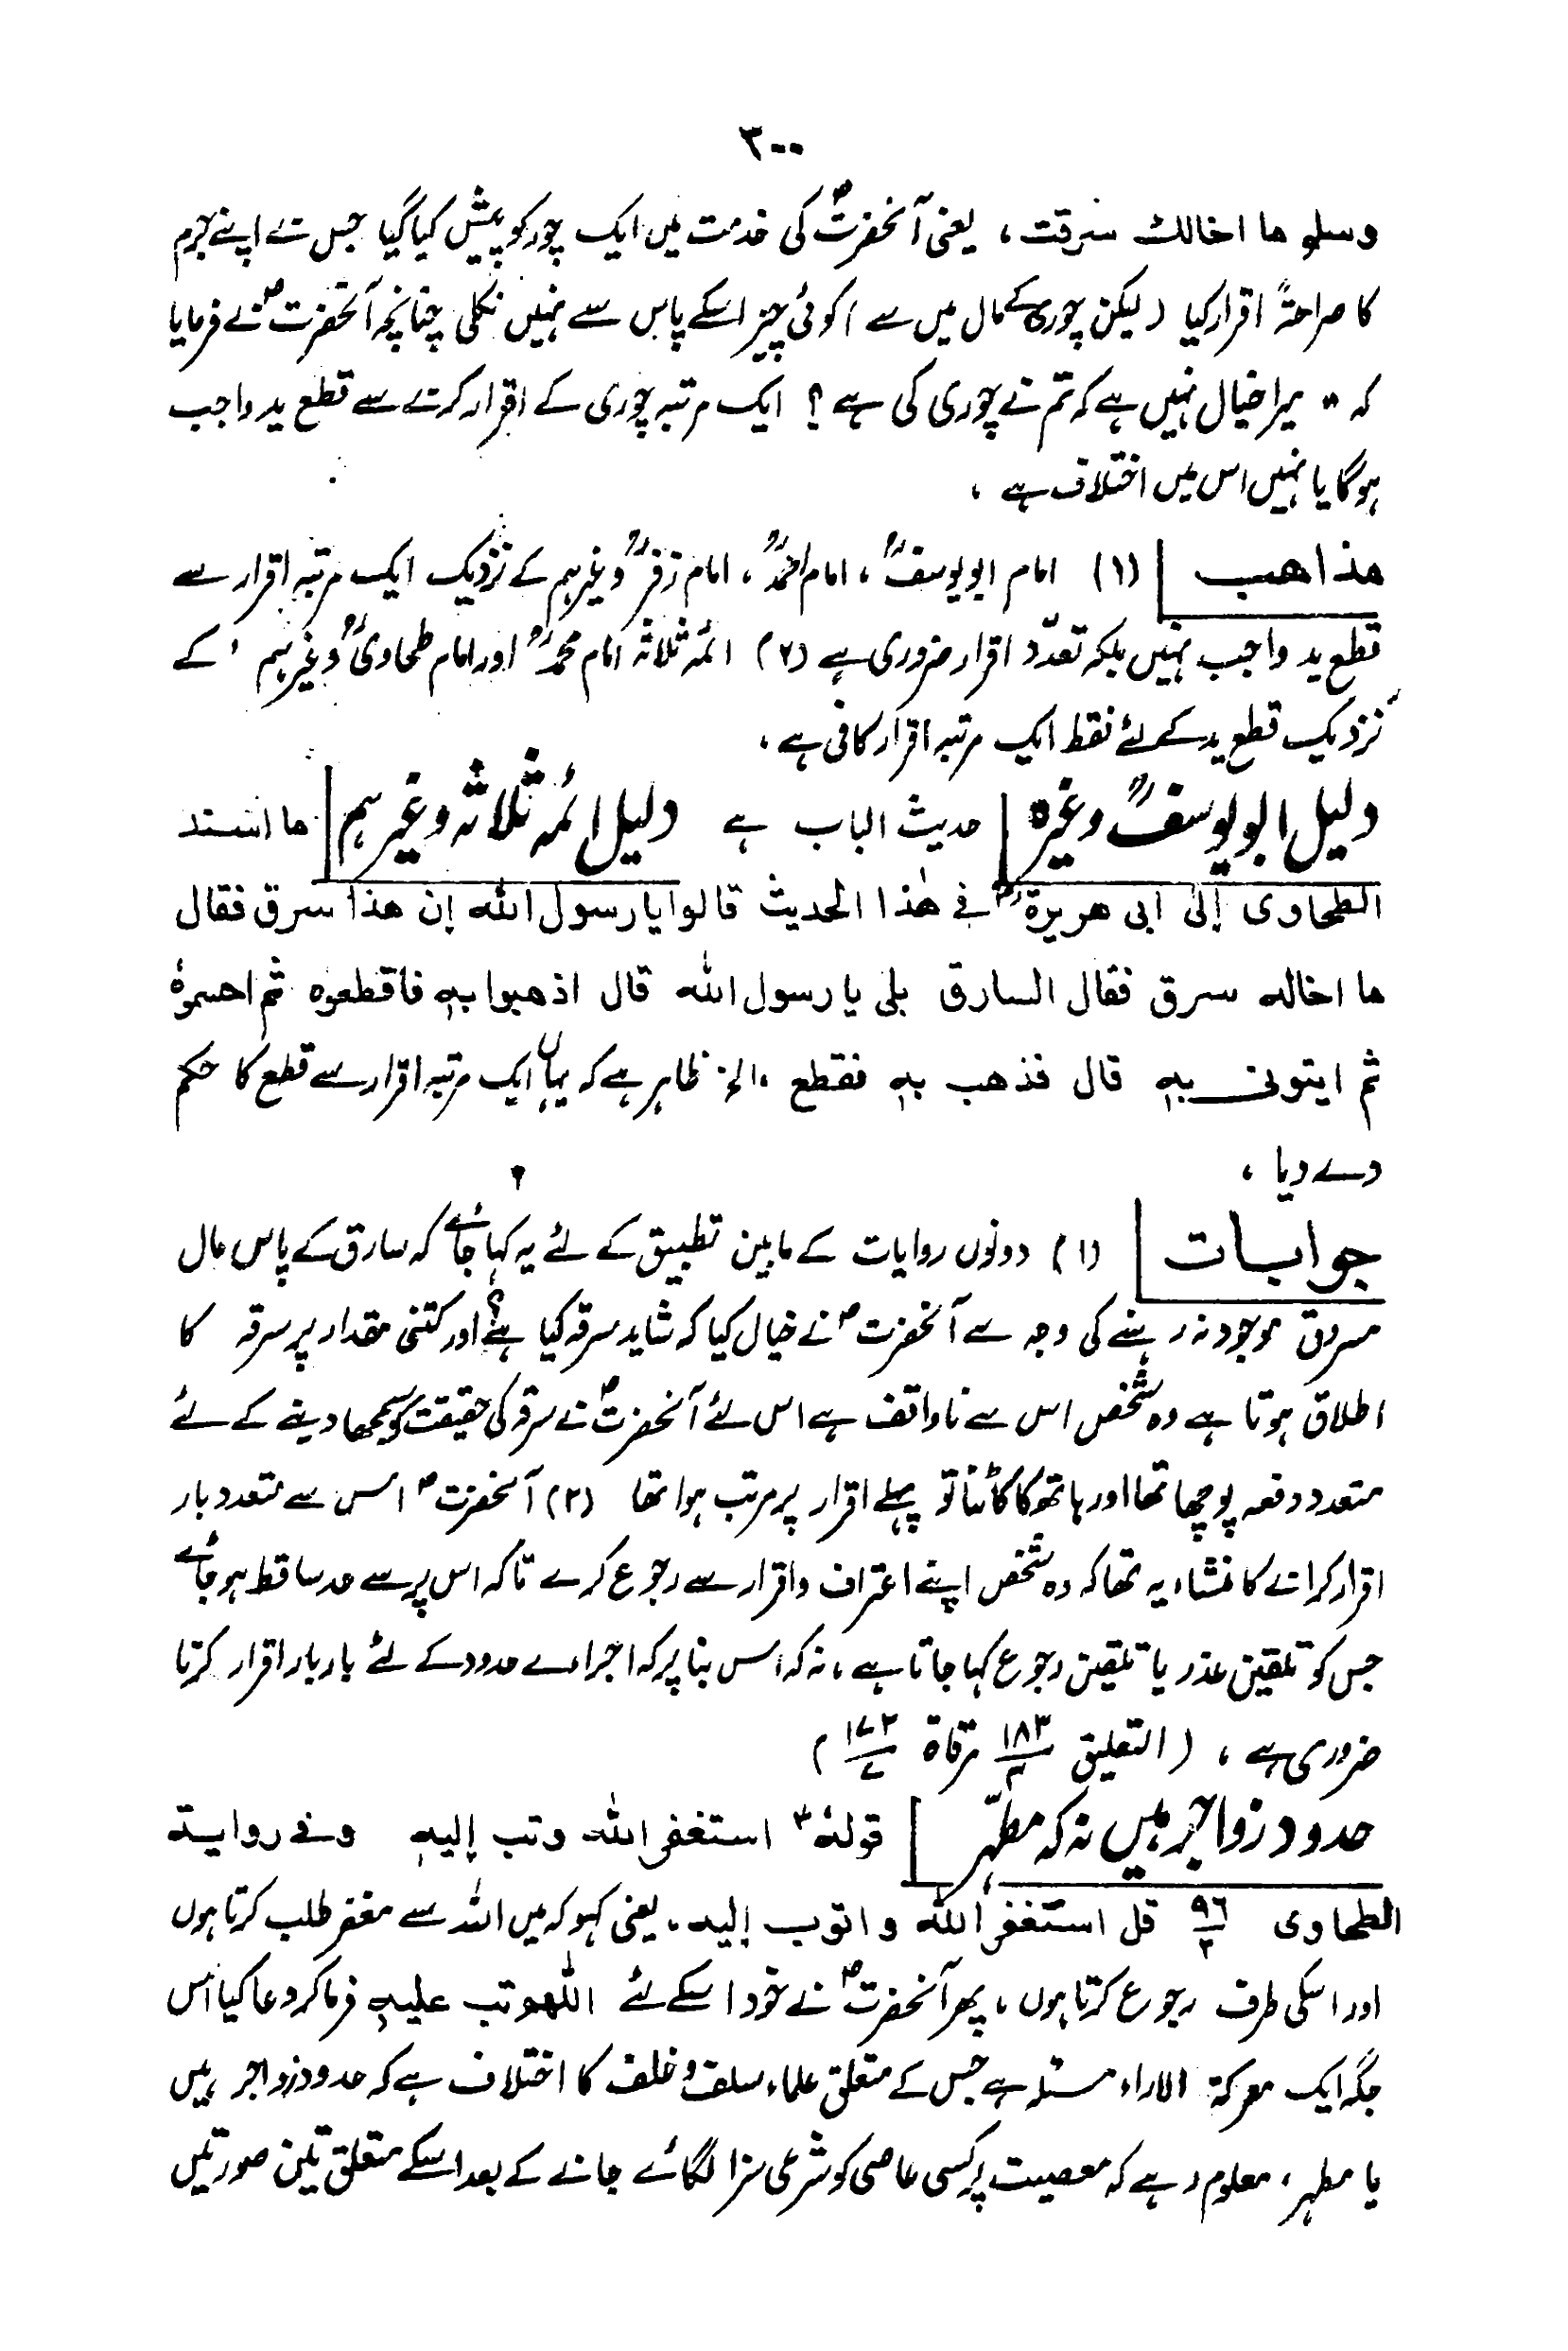 ۳۰۰
وسلم ما اخالك سرقت، یعنی آنحضرتؐ کی خدمت میں ایک چور کو پیش کیا گیا جس نے اپنے جرم
کا صراحۃً اقرار کیا (لیکن چوری کے مال میں سے) کوئی چیز اسکے پاس سے نہیں نکلی چنانچہ آنحضرتؐ نے فرمایا
کہ " میرا خیال نہیں ہے کہ تم نے چوری کی ہے ؟ ایک مرتبہ چوری کے اقرار کرنے سے قطع ید واجب
ہوگا یا نہیں اس میں اختلاف ہے ،
مذاهب (۱) امام ابو یوسفؒ ، امام احمدؒ ، امام زفرؒ وغیرہم کے نزدیک ایک مرتبہ اقرار سے
قطع ید واجب نہیں بلکہ تعدّد اقرار ضروری ہے (۲) ائمہ ثلاثہ امام محمدؒ اور امام طحاویؒ وغیرہم کے
نزدیک قطع ید کے لئے فقط ایک مرتبہ اقرار کافی ہے ،
دلیل ابو یوسفؒ وغیرہ حدیث الباب ہے دلیل ائمہ ثلاثہ وغیرہم ما اسند
الطحاوی إلی ابی هریرةؓ فی هٰذا الحدیث قالوا یا رسول الله إن هذا سرق فقال
ما اخاله سرق فقال السارق بلی یا رسول الله قال اذهبوا بهٖ فاقطعوہ ثم احسموہٗ
ثم ایتونی بهٖ قال فذهب بهٖ فقطع ،الخ ظاہر ہے کہ یہاں ایک مرتبہ اقرار سے قطع کا حکم
دے دیا ،
جوابات (۱) دونوں روایات کے مابین تطبیق کے لئے یہ کہا جائے کہ سارق کے پاس مال
مسروق موجود نہ رہنے کی وجہ سے آنحضرتؐ نے خیال کیا کہ شاید سرقہ کیا ہے؟ اور کتنی مقدار پر سرقہ کا
اطلاق ہوتا ہے وہ شخص اس سے ناواقف ہے اس لئے آنحضرتؐ نے سرقہ کی حقیقت کو سمجھا دینے کے لئے
متعدد دفعہ پوچھا تھا اور ہاتھ کا کاٹنا تو پہلے اقرار پر مرتب ہوا تھا (۲) آنحضرتؐ اس سے متعدد بار
اقرار کرانے کا منشاء یہ تھا کہ وہ شخص اپنے اعتراف واقرار سے رجوع کرے تاکہ اس پر سے حد ساقط ہو جائے
جس کو تلقین عذر یا تلقین رجوع کہا جاتا ہے ، نہ کہ اس بنا پر کہ اجرائے حدود کے لئے بار بار اقرار کرنا
ضروری ہے ، (التعلیق ۱۸۳/۴ مرقاة ۱۷۲/۷)
حدود زواجر ہیں نہ کہ مطہّر قولهٗ استغفر الله وتب إلیهٖ وفی روایة
الطحاوی ۹۶/۲ قل استغفر الله واتوب إلیه، یعنی کہو کہ میں اللہ سے مغفر طلب کرتا ہوں
اور اسکی طرف رجوع کرتا ہوں ، پھر آنحضرتؐ نے خود اسکے لئے اللّٰهم تب علیهٖ فرما کر دعا کیا اس
جگہ ایک معرکۃ الاراء مسئلہ ہے جس کے متعلق علماء سلف وخلف کا اختلاف ہے کہ حدود زواجر ہیں
یا مطہر ، معلوم رہے کہ معصیت پر کسی عاصی کو شرعی سزا لگائے جانے کے بعد اسکے متعلق تین صورتیں